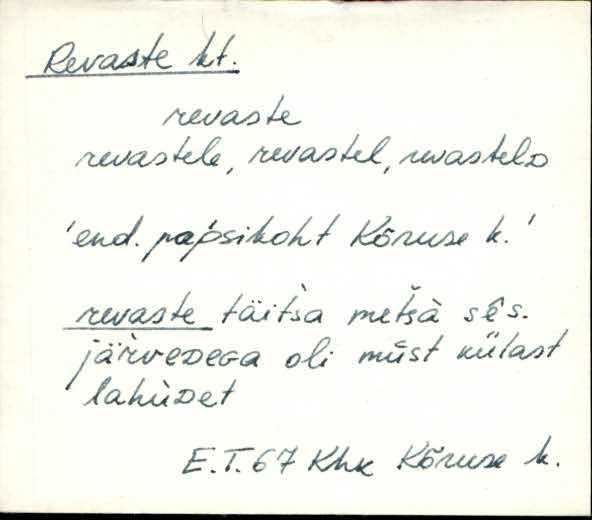 Revaste kt.
revaste
revastele, revastel, revastelᴅ
'end. papsikoht Kõruse k.'
revaste täitsa metsà sês.
järveᴅeɢa oli mûst külast
lahùᴅet
E.T.67 Khk Kõruse k.